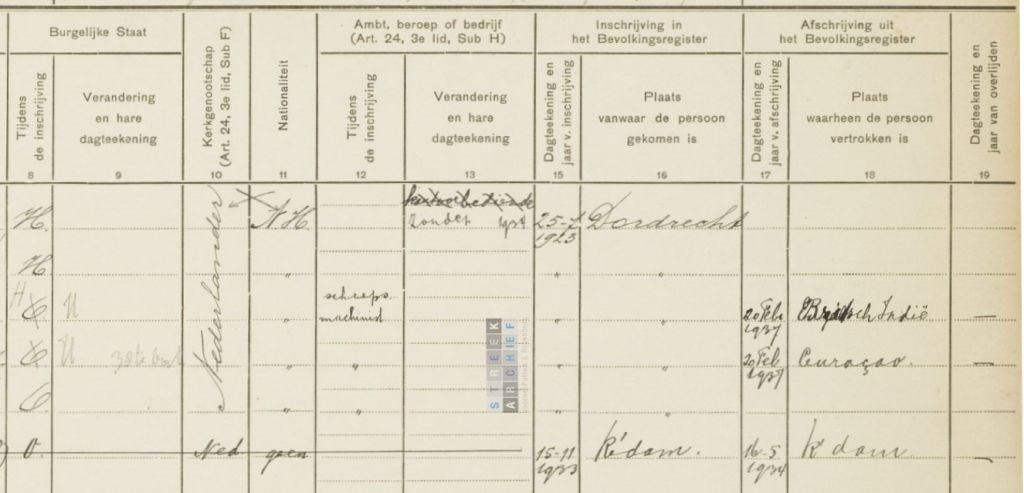 Burgelijke Staat
Kerkgenootschap
(Art. 24, 3e lid, Sub F)
Nationaliteit
Ambt, beroep of bedrijf
(Art. 24, 3e lid, Sub H)
Inschrijving in
het Bevolkingsregister
Afschrijving uit
het Bevolkingsregister
Dagteekening en
jaar van overlijden
Tijdens
de inschrijving
Verandering
en hare
dagteekening
Tijdens
de inschrijving
Verandering
en hare
dagteekening
Dagteekening en
jaar v. inschrijving
Plaats
vanwaar de persoon
gekomen is
Dagteekening en
jaar v. afschrijving
Plaats
waarheen de persoon
vertrokken is
8 9 10 11 12 13 15 16 17 18 19
Nederlander
H. N.H. zonder 25-7 Dordrecht
1923
H " " "
H
scheeps
O " machinist " " 20 Feb Indië —
1937
O " " " " 20 Feb Curaçao. —
1937
O " " " "
O. Ned geen 15-11 R'dam. 16-5 R'dam
1933 1934
STREEK
ARCHIEF